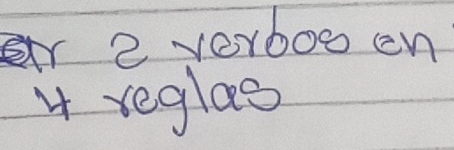 2 verbos en
4 reglas